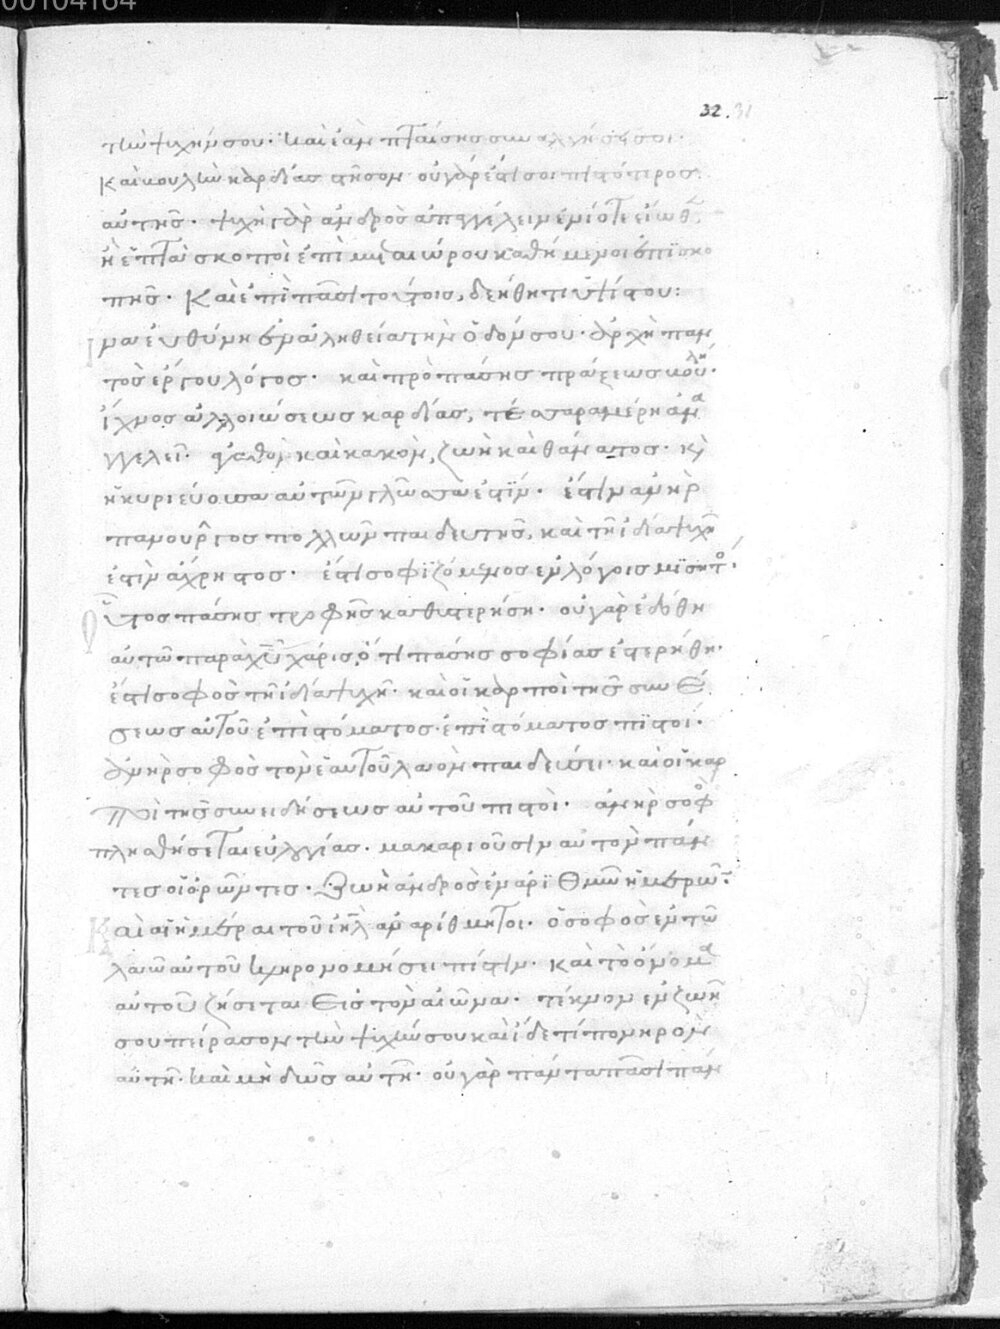 00104164
32. 31
τὴν ψυχήν σου· καὶ ἐὰν πταίσης συναλγήσει σοι·
Καὶ βουλὴν καρδίας στῆσον οὐ γάρ ἐστί σοι πιστότερος
αὐτῆς· ψυχὴ γὰρ ἀνδρὸς ἀπαγγέλειν ἐνίοτε εἴωθ
ἢ ἑπτὰ σκοποὶ ἐπὶ μετεώρου καθήμενοι ἐπὶ σκο
πῆς· Καὶ ἐπὶ πᾶσι τούτοις, δεήθητι ὑψίστου:
ἵνα εὐθύνη ἐν ἀληθεία τὴν ὁδόν σου· ἀρχὴ παν
τὸς ἔργου λόγος· καὶ πρὸ πάσης πράξεως βουλή·
ἴχνος ἀλλοιώσεως καρδίας, τέσσαρα μέρη ἀνα
γγελεῖ· ἀγαθὸν καὶ κακὸν, ζωὴ καὶ θάνατος· κὶ
ἡ κυριεύουσα αὐτῶν γλῶσσα ἐστίν· ἔστιν ἀνὴρ
πανοῦργος πολλῶν παιδευτής, καὶ τῆ ἰδία ψυχῆ
ἐστὶν ἄχρηστος· ἔστι σοφιζόμενος ἐν λόγοις μισητο·
Οὗτος πάσης τροφῆς καθυστερήσει· οὐ γὰρ ἐδόθη
αὐτῶ παρὰ κυ χάρις, ὅτι πάσης σοφίας ἐστερήθη·
ἔστι σοφὸς τῆ ἰδία ψυχῆ· καὶ οἱ καρποὶ τῆς συνέ
σεως αὐτοῦ ἐπὶ στόματος· ἐπὶ στόματος πιστοί·
ἀνὴρ σοφὸς τὸν ἑαυτοῦ λαὸν παιδεύσει· καὶ οἱ καρ
ποὶ τῆς συνειδήσεως αὐτοῦ πιστοὶ· ἀνὴρ σοφο
πλησθήσεται εὐλογίας· μακαριοῦσιν αὐτὸν πάν
τες οἱ ὁρῶντες· Ζωὴ ἀνδρὸς ἐν ἀριθμῶ ἡμερῶ·
Καὶ αἱ ἡμέραι τοῦ ιηλ ἀναρίθμητοι· ὁ σοφὸς ἐν τῶ
λαῶ αὐτοῦ κληρονομήσει πίστιν· καὶ τὸ ὄνομα
αὐτοῦ ζήσεται εἰς τὸν αἰῶνα· τέκνον ἐν ζωῆ
σου πείρασον τὴν ψυχήν σου καὶ ἴδε τί πονηρὸν
αὐτῆ· καὶ μὴ δῶς αὐτῆ· οὐ γὰρ πάντα πᾶσι πάν